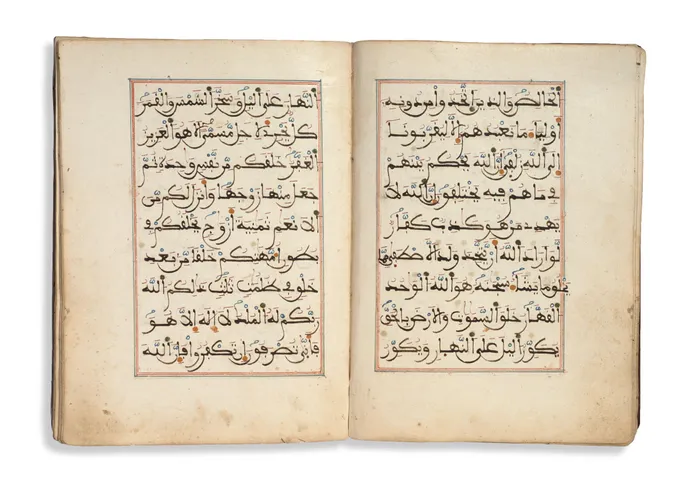 الخالص والذين اتخذوا من دونه
أولياء ما نعبدهم إلا ليقربونا
إلى الله زلفى إن الله يحكم بينهم
في ما هم فيه يختلفون إن الله لا
يهدي من هو كذب كفار
لو أراد الله أن يتخذ ولدا لاصطفى مما
يخلق ما يشاء سبحنه هو الله الوحد
القهار خلق السموت والارض بالحق
يكور اليل على النهار ويكور
النهار على اليل وسخر الشمس والقمر
كل يجري لاجل مسمى الا هو العزيز
الغفر خلقكم من نفس وحدة ثم
جعل منها زوجها وأنزل لكم من
الانعم ثمنية أزوج يخلقكم في
بطون أمهتكم خلقا من بعد
خلق في ظلمت ثلث ذلكم الله
ربكم له الملك لا إله إلا هو
فأنى تصرفون إن تكفروا فإن الله